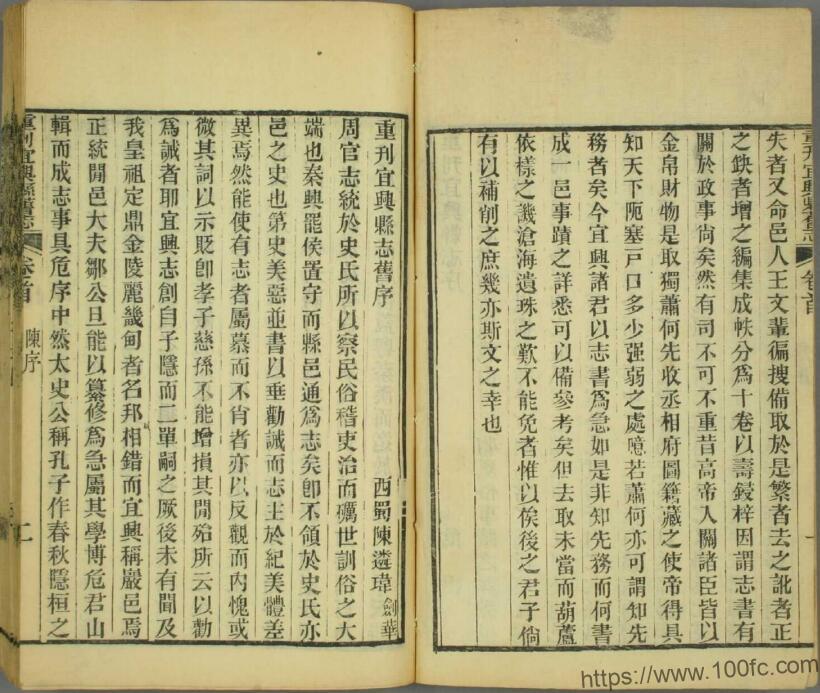 失者又命邑人王文輩徧搜備取於是繁者去之訛者正
之鈌者增之編集成帙分爲十卷以壽鋟梓因謂志書有
關於政事尙矣然有司不可不重昔高帝入關諸臣皆以
金帛財物是取獨蕭何先收丞相府圖籍藏之使帝得具
知天下阨塞戸口多少强弱之處噫若蕭何亦可謂知先
務者矣今宜興諸君以志書爲急如是非知先務而何書
成一邑事蹟之詳悉可以備參考矣但去取未當而葫蘆
依樣之譏滄海遺珠之歎不能免者惟以俟後之君子倘
有以補削之庶幾亦斯文之幸也
重刊宜興縣舊志
卷首
一
重刊宜興縣志舊序
西蜀陳遴瑋 劍華
周官志統於史氏所以察民俗稽吏治而礪世訓俗之大
端也秦興罷侯置守而縣邑通爲志矣卽不領於史氏亦
邑之史也第史美惡並書以垂勸誡而志主於紀美體差
異焉然能使有志者屬慕而不肖者亦以反觀而內愧或
微其詞以示貶卽孝子慈孫不能增損其閒殆所云以勸
爲誡者耶宜興志創自子隱而二單嗣之厥後未有聞及
我皇祖定鼎金陵麗畿甸者名邦相錯而宜興稱巖邑焉
正統閒邑大夫鄒公旦能以纂修爲急屬其學博危君山
輯而成志事具危序中然太史公稱孔子作春秋隱桓之
重刊宜興縣舊志
卷首
陳序
二
https://www.100fc.com